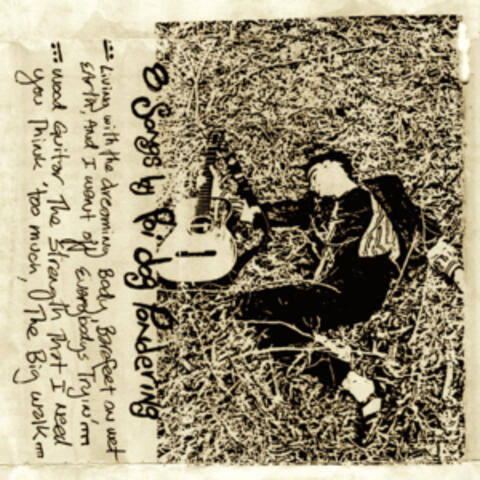 8 Songs by Poi dog Pondering
... Living with the dreaming Body, Barefoot on wet
Earth, And I went off Everybodys Tryin' ...
... Wood Guitar, The Strength That I need
You Think too much, The Big walk...